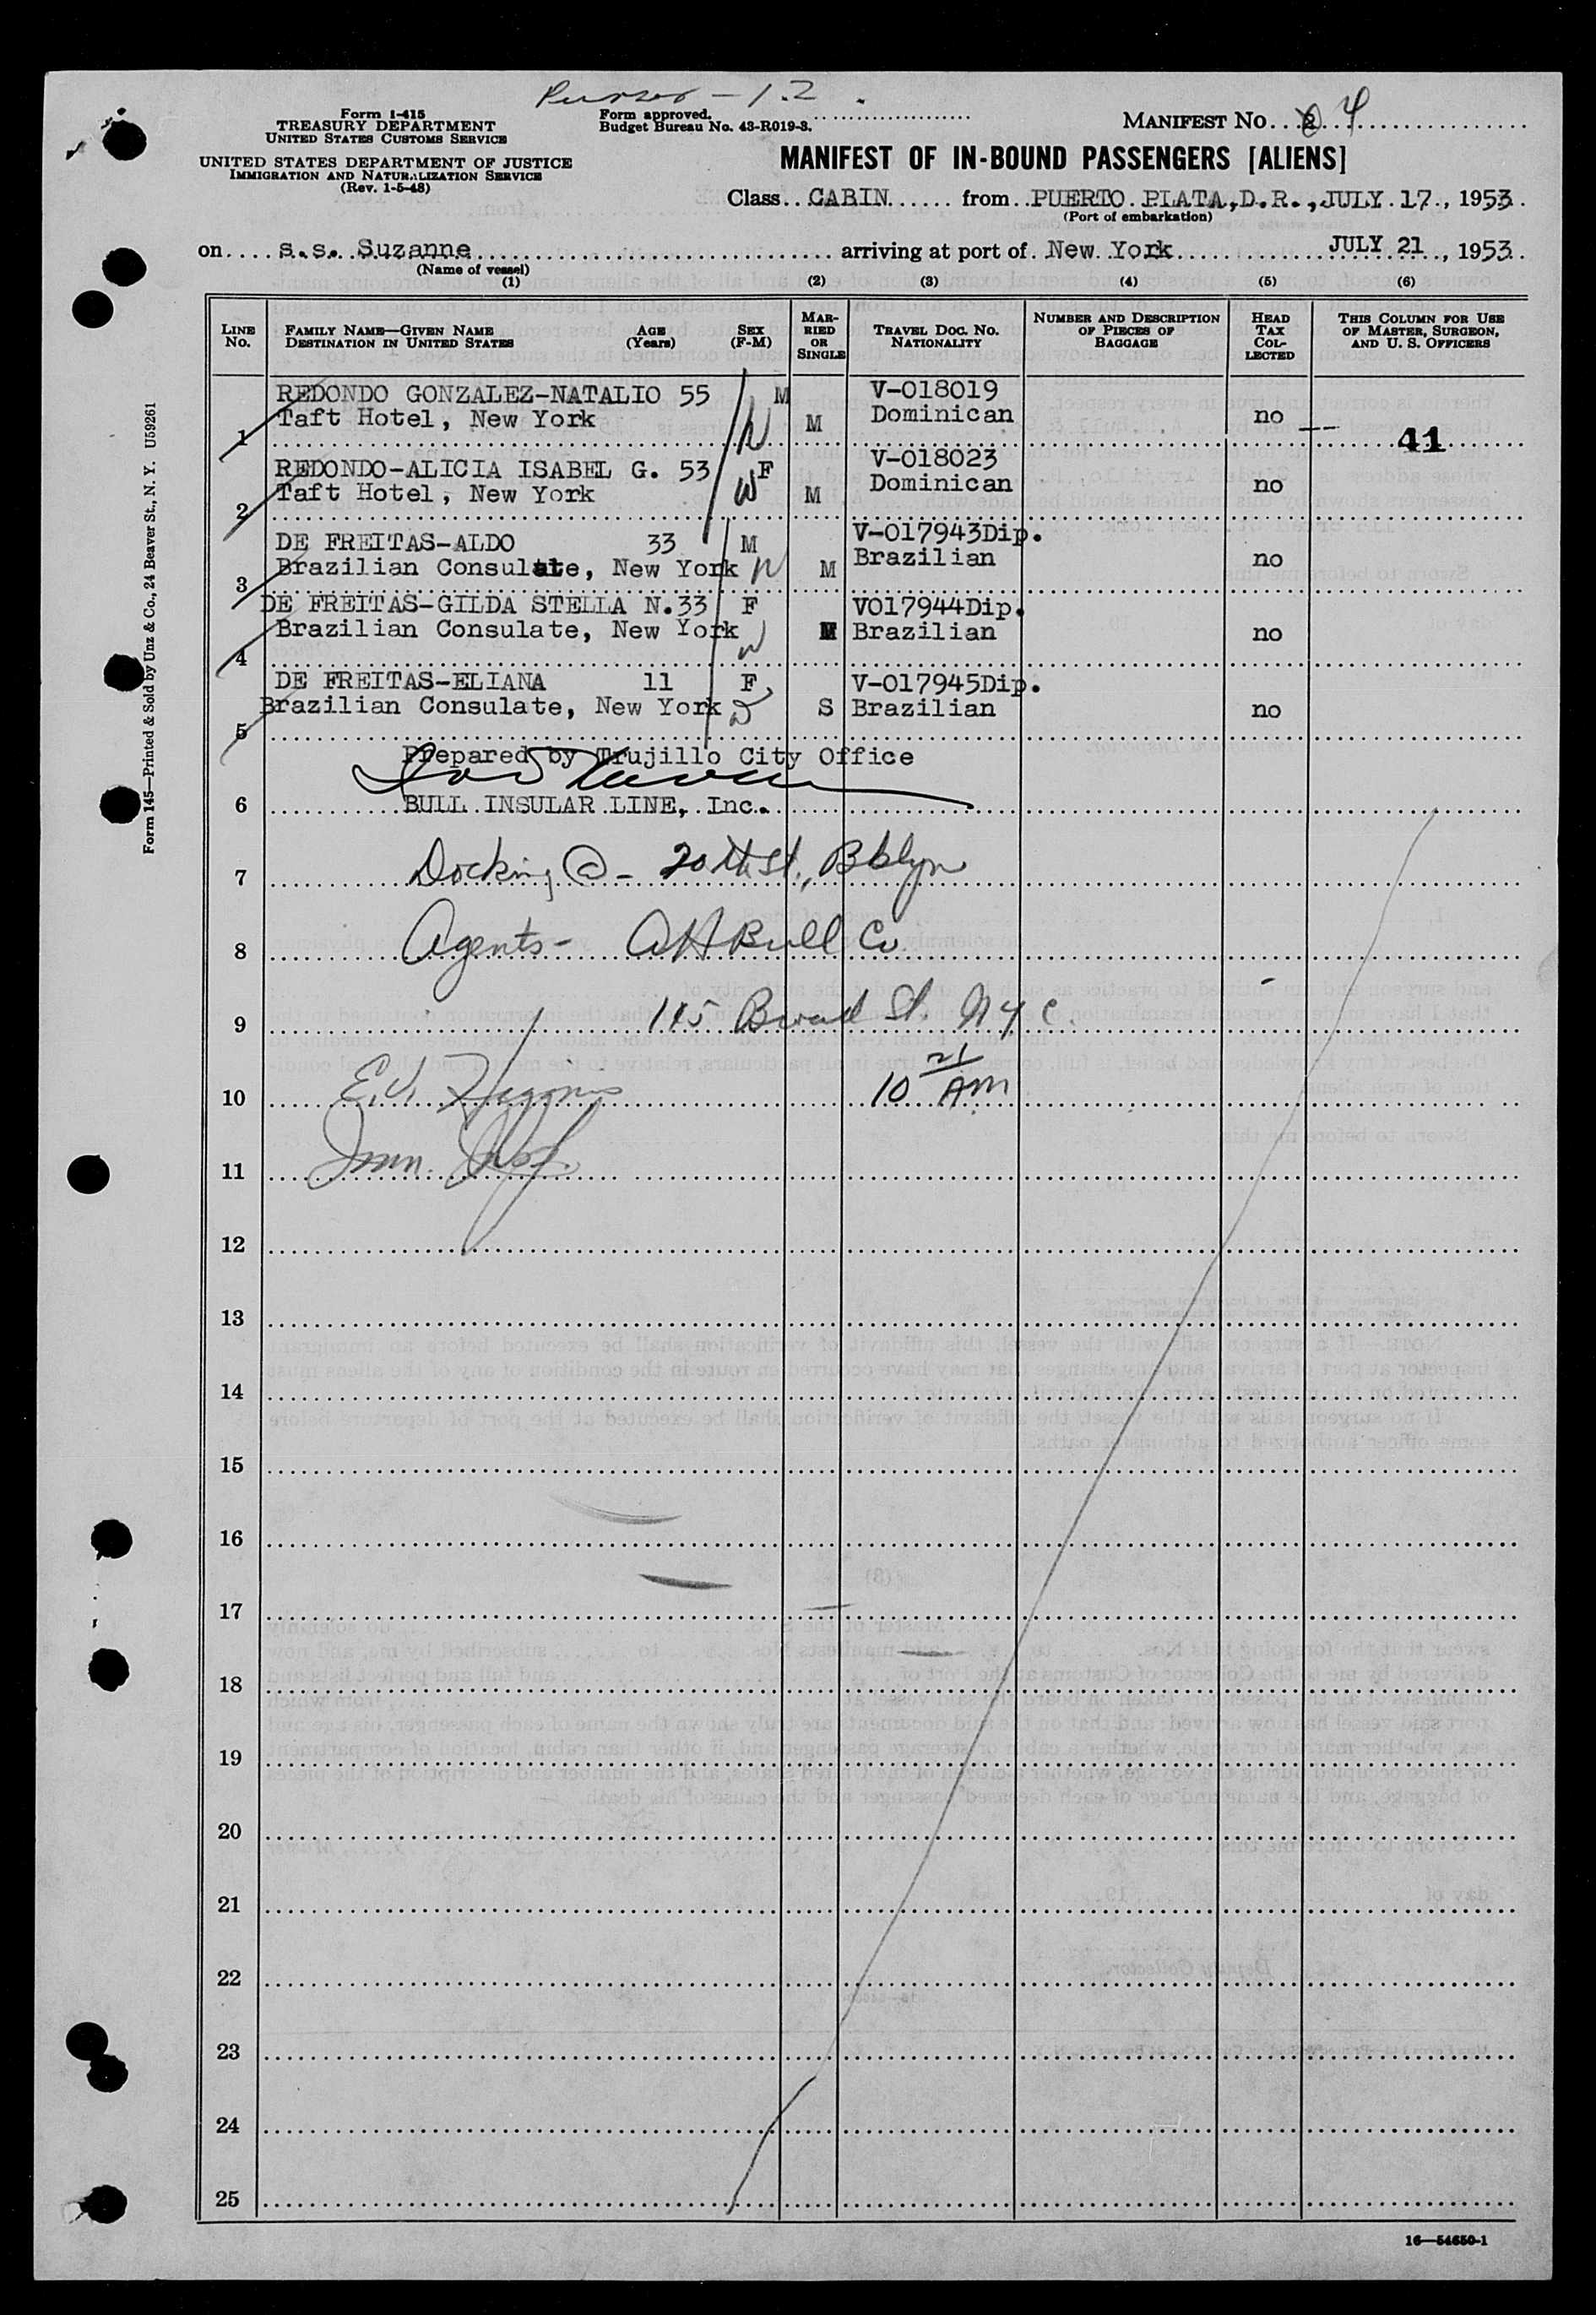 Purser - 1.2
Form I-415
TREASURY DEPARTMENT
UNITED STATES CUSTOMS SERVICE
Form approved.
Budget Bureau No. 43-R019-3.
MANIFEST NO. 4
UNITED STATES DEPARTMENT OF JUSTICE
IMMIGRATION AND NATURALIZATION SERVICE
(Rev. 1-5-48)
MANIFEST OF IN-BOUND PASSENGERS [ALIENS]
Class CABIN from PUERTO PLATA, D.R., JULY 17, 1953
(Port of embarkation)
on s.s. Suzanne arriving at port of New York JULY 21, 1953
(Name of vessel)
(1) (2) (3) (4) (5) (6)
LINE No. FAMILY NAME—GIVEN NAME DESTINATION IN UNITED STATES AGE (Years) SEX (F-M) MARRIED OR SINGLE TRAVEL DOC. NO. NATIONALITY NUMBER AND DESCRIPTION OF PIECES OF BAGGAGE HEAD TAX COLLECTED THIS COLUMN FOR USE OF MASTER, SURGEON, AND U. S. OFFICERS
REDONDO GONZALEZ-NATALIO 55 M V-018019
1 Taft Hotel, New York W M Dominican no 41
REDONDO-ALICIA ISABEL G. 53 F V-018023
2 Taft Hotel, New York W M Dominican no
DE FREITAS-ALDO 33 M V-017943Dip.
3 Brazilian Consulate, New York W M Brazilian no
DE FREITAS-GILDA STELLA N. 33 F V017944Dip.
4 Brazilian Consulate, New York W M Brazilian no
DE FREITAS-ELIANA 11 F V-017945Dip.
5 Brazilian Consulate, New York W S Brazilian no
Prepared by Trujillo City Office
6 BULL INSULAR LINE, Inc.
7 Docking @ - 20th St., Bklyn
8 Agents - AH Bull Co.
9 115 Broad St. NYC.
10 E.J. Higgins 10 AM
11 Imm. Insp.
12
13
14
15
16
17
18
19
20
21
22
23
24
25
16—54650-1
Form 145—Printed & Sold by Unz & Co., 24 Beaver St., N. Y. U59261